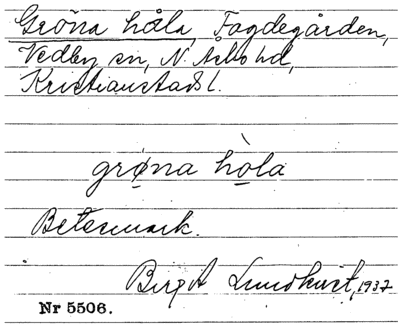 Gröna håla, Fogdegården,
Vedby sn, N. Åsbo hd,
Kristianstads l.
grø̱na hò̱la
Betesmark.
Birgit Lundkvist, 1937
Nr 5506.